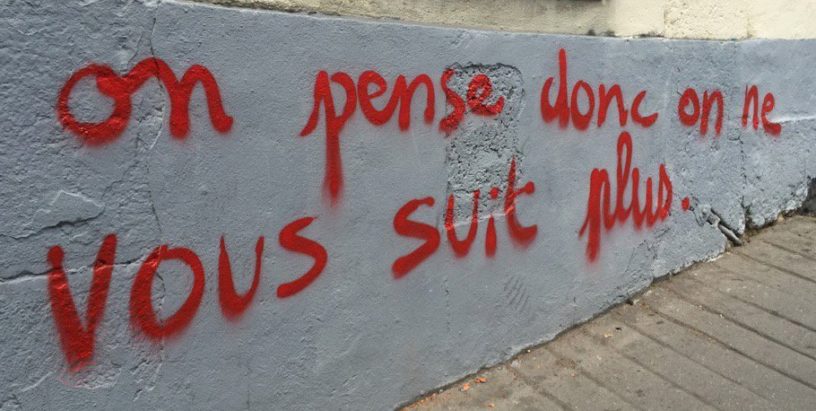 on pense donc on ne
vous suit plus.